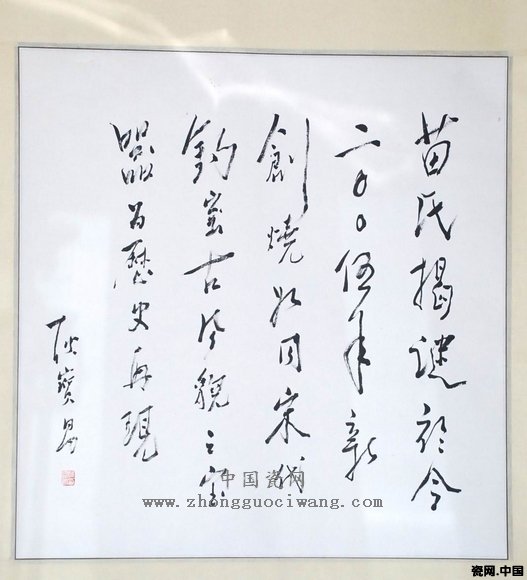 苗氏揭謎於今
二〇〇伍年新
創燒如同宋代
鈞窑古风貌之宝
器为歷史再現
耿寶昌
中国瓷网
www.zhongguociwang.com
瓷网.中国